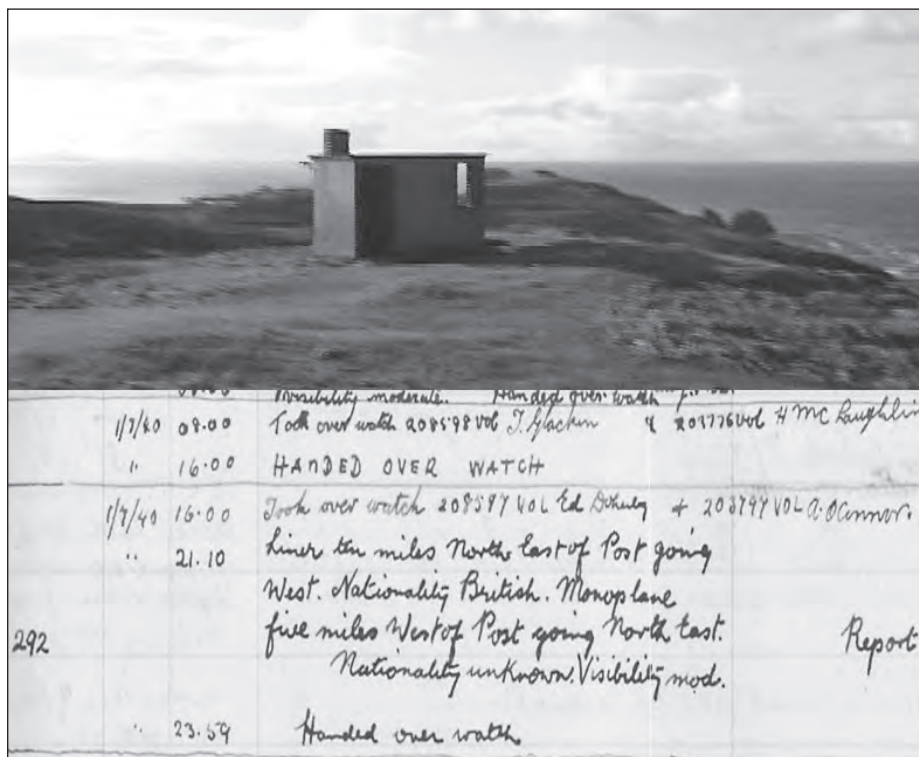 visibility moderate. Handed over watch
1/7/40 08.00 Took over watch 208598 Vol J. Glackin & 203776 Vol H Mc Laughlin
" 16.00 HANDED OVER WATCH
1/7/40 16.00 Took over watch 208587 VOL Ed Doherty + 203797 VOL A. O'Connor.
" 21.10 Liner ten miles North East of Post going
West. Nationality British. Monoplane
292 five miles West of Post going North East. Report
Nationality unknown. Visibility mod.
" 23.59 Handed over watch